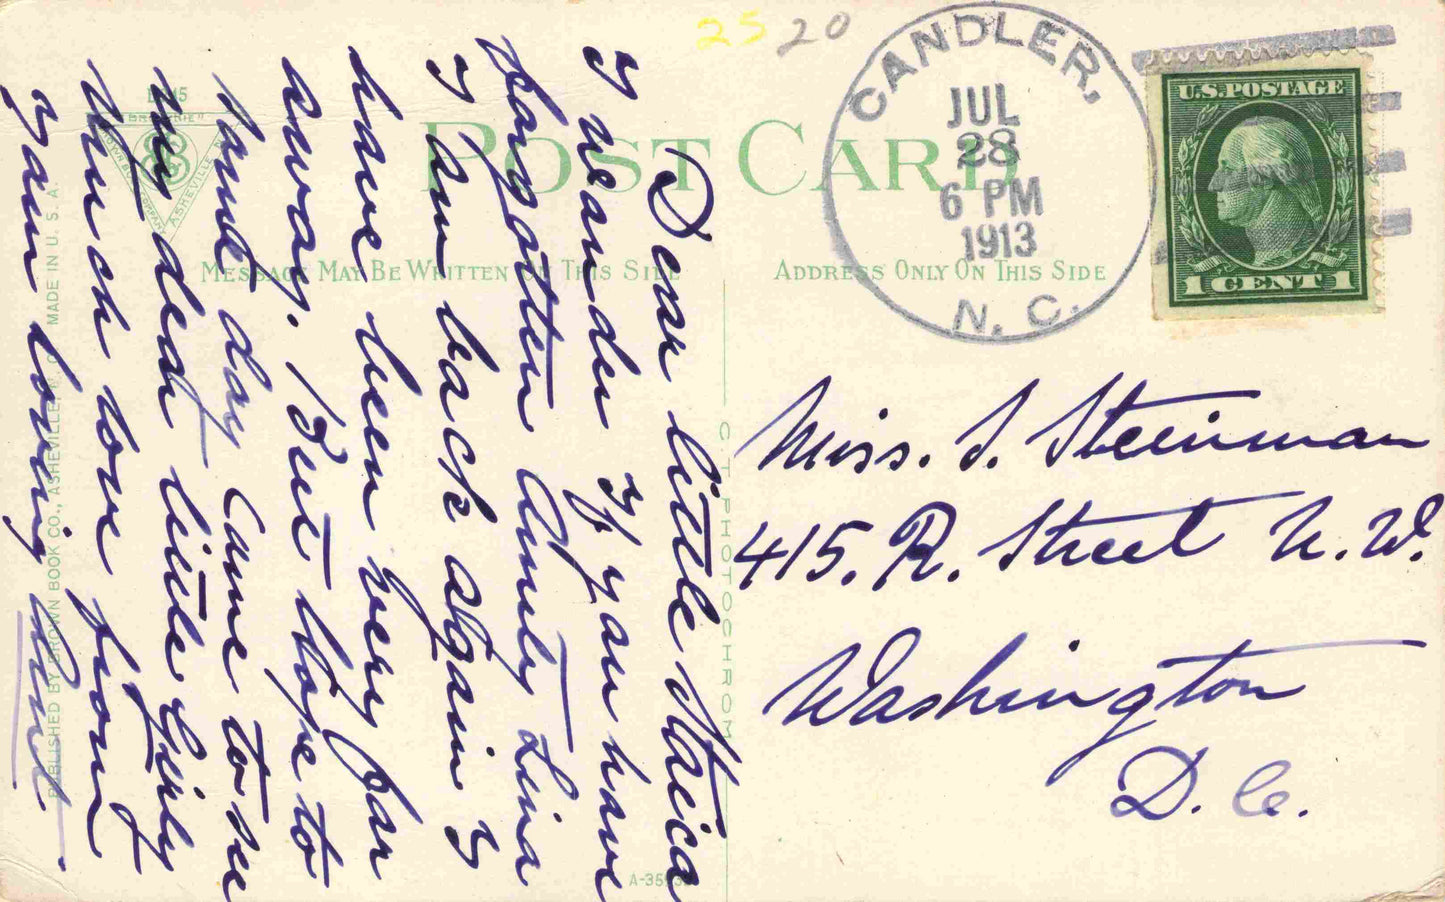 25 20
CANDLER,
JUL
28
6 PM
1913
N. C.
U.S. POSTAGE
1 CENT 1
POST CARD
MESSAGE MAY BE WRITTEN ON THIS SIDE
ADDRESS ONLY ON THIS SIDE
Miss. S. Steinman
415. R. Street N. W.
Washington
D. C.
Dear little
I wonder If you have
forgotten Aunty Lina
I am back again I
have been very far
away. But hope to
some day come to see
my dear little Girly
Much love from
your loving
C T PHOTOCHROM
PUBLISHED BY BROWN BOOK CO., ASHEVILLE, N. C.
MADE IN U. S. A.
ASHEVILLE